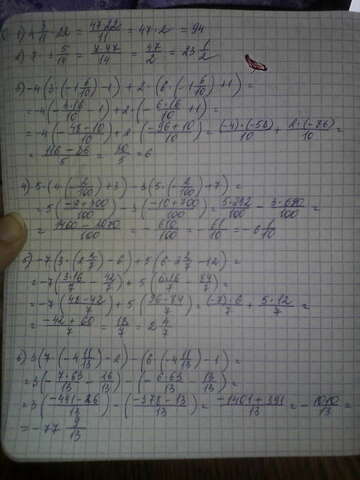 1) 4 3/11 · 22 = 47·22/11 = 47·2 = 94
2) 7 · 3 5/14 = 7·47/14 = 47/2 = 23 1/2
3) -4(3·(-1 6/10)-1)+2·(6·(-1 6/10)+1) =
= -4(-3·16/10 - 1)+2·(-6·16/10 + 1) =
= -4(-48-10/10)+2·(-96+10/10) = (-4)·(-58)/10 + 2·(-86)/10 =
= 116-86/5 = 30/5 = 6
4) 5·(4·(-2/100)+3)-3(5·(-2/100)+7) =
= 5(-8+300/100)-3(-10+700/100) = 5·292/100 - 3·690/100 =
= 1460-2070/100 = -610/100 = -61/10 = -6 1/10
5) -7(3·(2 2/7)-6)+5(6·2 2/7-12) =
= -7(3·16/7 - 42/7)+5(6·16/7 - 84/7) =
= -7(48-42/7)+5(96-84/7) = (-7)·6/7 + 5·12/7 =
= -42+60/7 = 18/7 = 2 4/7
6) 3(7·(-4 11/13)-2)-(6·(-4 11/13)-1) =
= 3(-7·63/13 - 26/13)-(-6·63/13 - 13/13) =
= 3(-441-26/13)-(-378-13/13) = -1401+391/13 = -1010/13 =
= -77 9/13